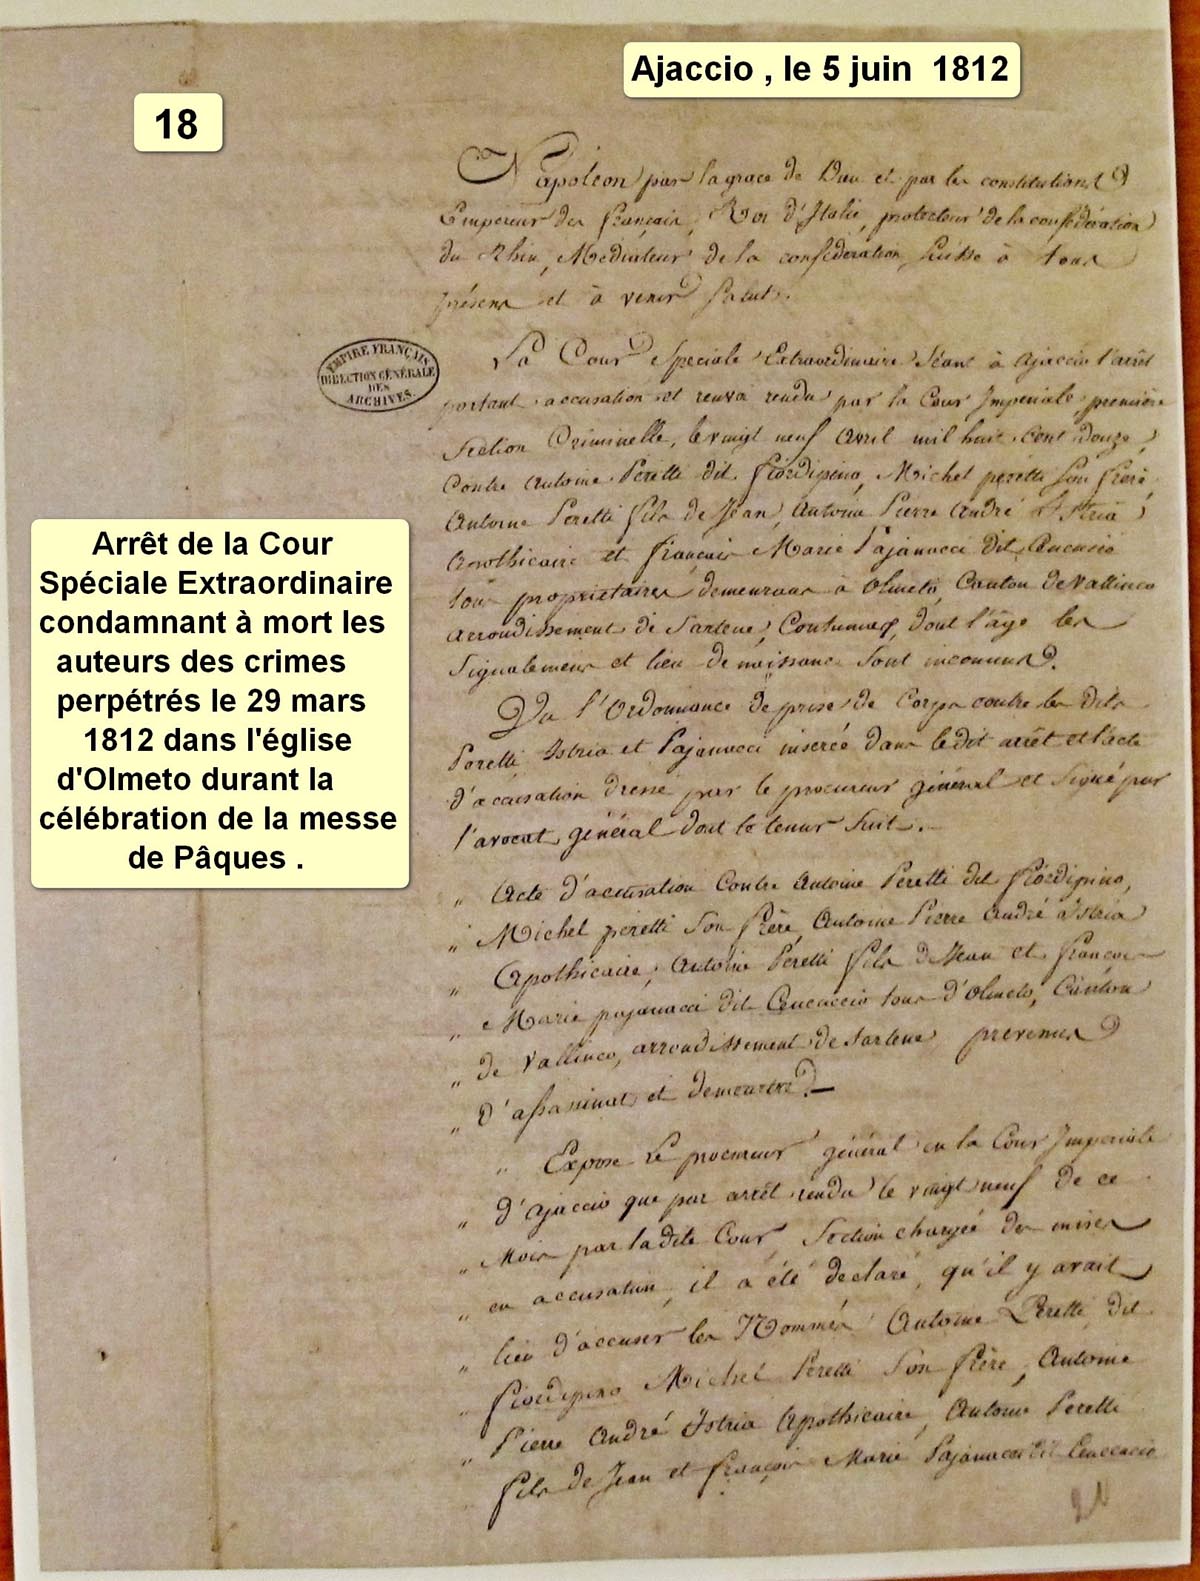 Ajaccio , le 5 juin 1812
18
Napoléon par la grace de Dieu et par les constitutions
Empereur des français, Roi d'Italie, protecteur de la confédération
du Rhin, Mediateur de la confédération Suisse à tous
présens et à venir Salut.
EMPIRE FRANÇAIS
DIRECTION GÉNÉRALE
DES
ARCHIVES.
La Cour Speciale Extraordinaire Séant à Ajaccio l'arrêt
portant accusation et renvoi rendu par la Cour Imperiale, première
Section Criminelle, le vingt neuf Avril mil huit cent douze,
Contre Antoine Peretti dit Fiordispino, Michel peretti Son frere
Antoine Peretti fils de Jean, Antoine Pierre André Istria
Apothicaire et françois Marie Pajanacci dit
tous proprietaires demeurans à Olmeto, Canton de Vallinco
arrondissement de Sartene, Contumax, dont l'âge les
Signalemens et lieu de naissance Sont inconnus.
Vu l'Ordonnance de prise de Corps contre les dits
Peretti Istria et Pajanacci inserée dans le dit arrêt et l'acte
d'accusation dressé par le procureur général et Signé par
l'avocat général dont la teneur Suit.
Arrêt de la Cour
Spéciale Extraordinaire
condamnant à mort les
auteurs des crimes
perpétrés le 29 mars
1812 dans l'église
d'Olmeto durant la
célébration de la messe
de Pâques .
„ Acte d'accusation Contre Antoine Peretti dit Fiordispino,
„ Michel peretti Son frère, Antoine Pierre André Istria
„ Apothicaire, Antoine Peretti fils de Jean et françois
„ Marie pajanacci dit Cencaccio tous d'Olmeto, Canton
„ de Vallinco, arrondissement de Sartene prevenus
„ d'assassinat et de meurtre.
„ Expose Le procureur général en la Cour Imperiale
„ d'Ajaccio que par arrêt rendu le vingt neuf de ce
„ Mois par la dite Cour, Section chargée des mises
„ en accusation, il a été declaré, qu'il y avait
„ lieu d'accuser les Nommés Antoine Peretti dit
„ Fiordispino Michel Peretti Son frère, Antoine
„ Pierre André Istria Apothicaire, Antoine Peretti
„ fils de Jean et françois Marie Pajanacci dit Cencaccio